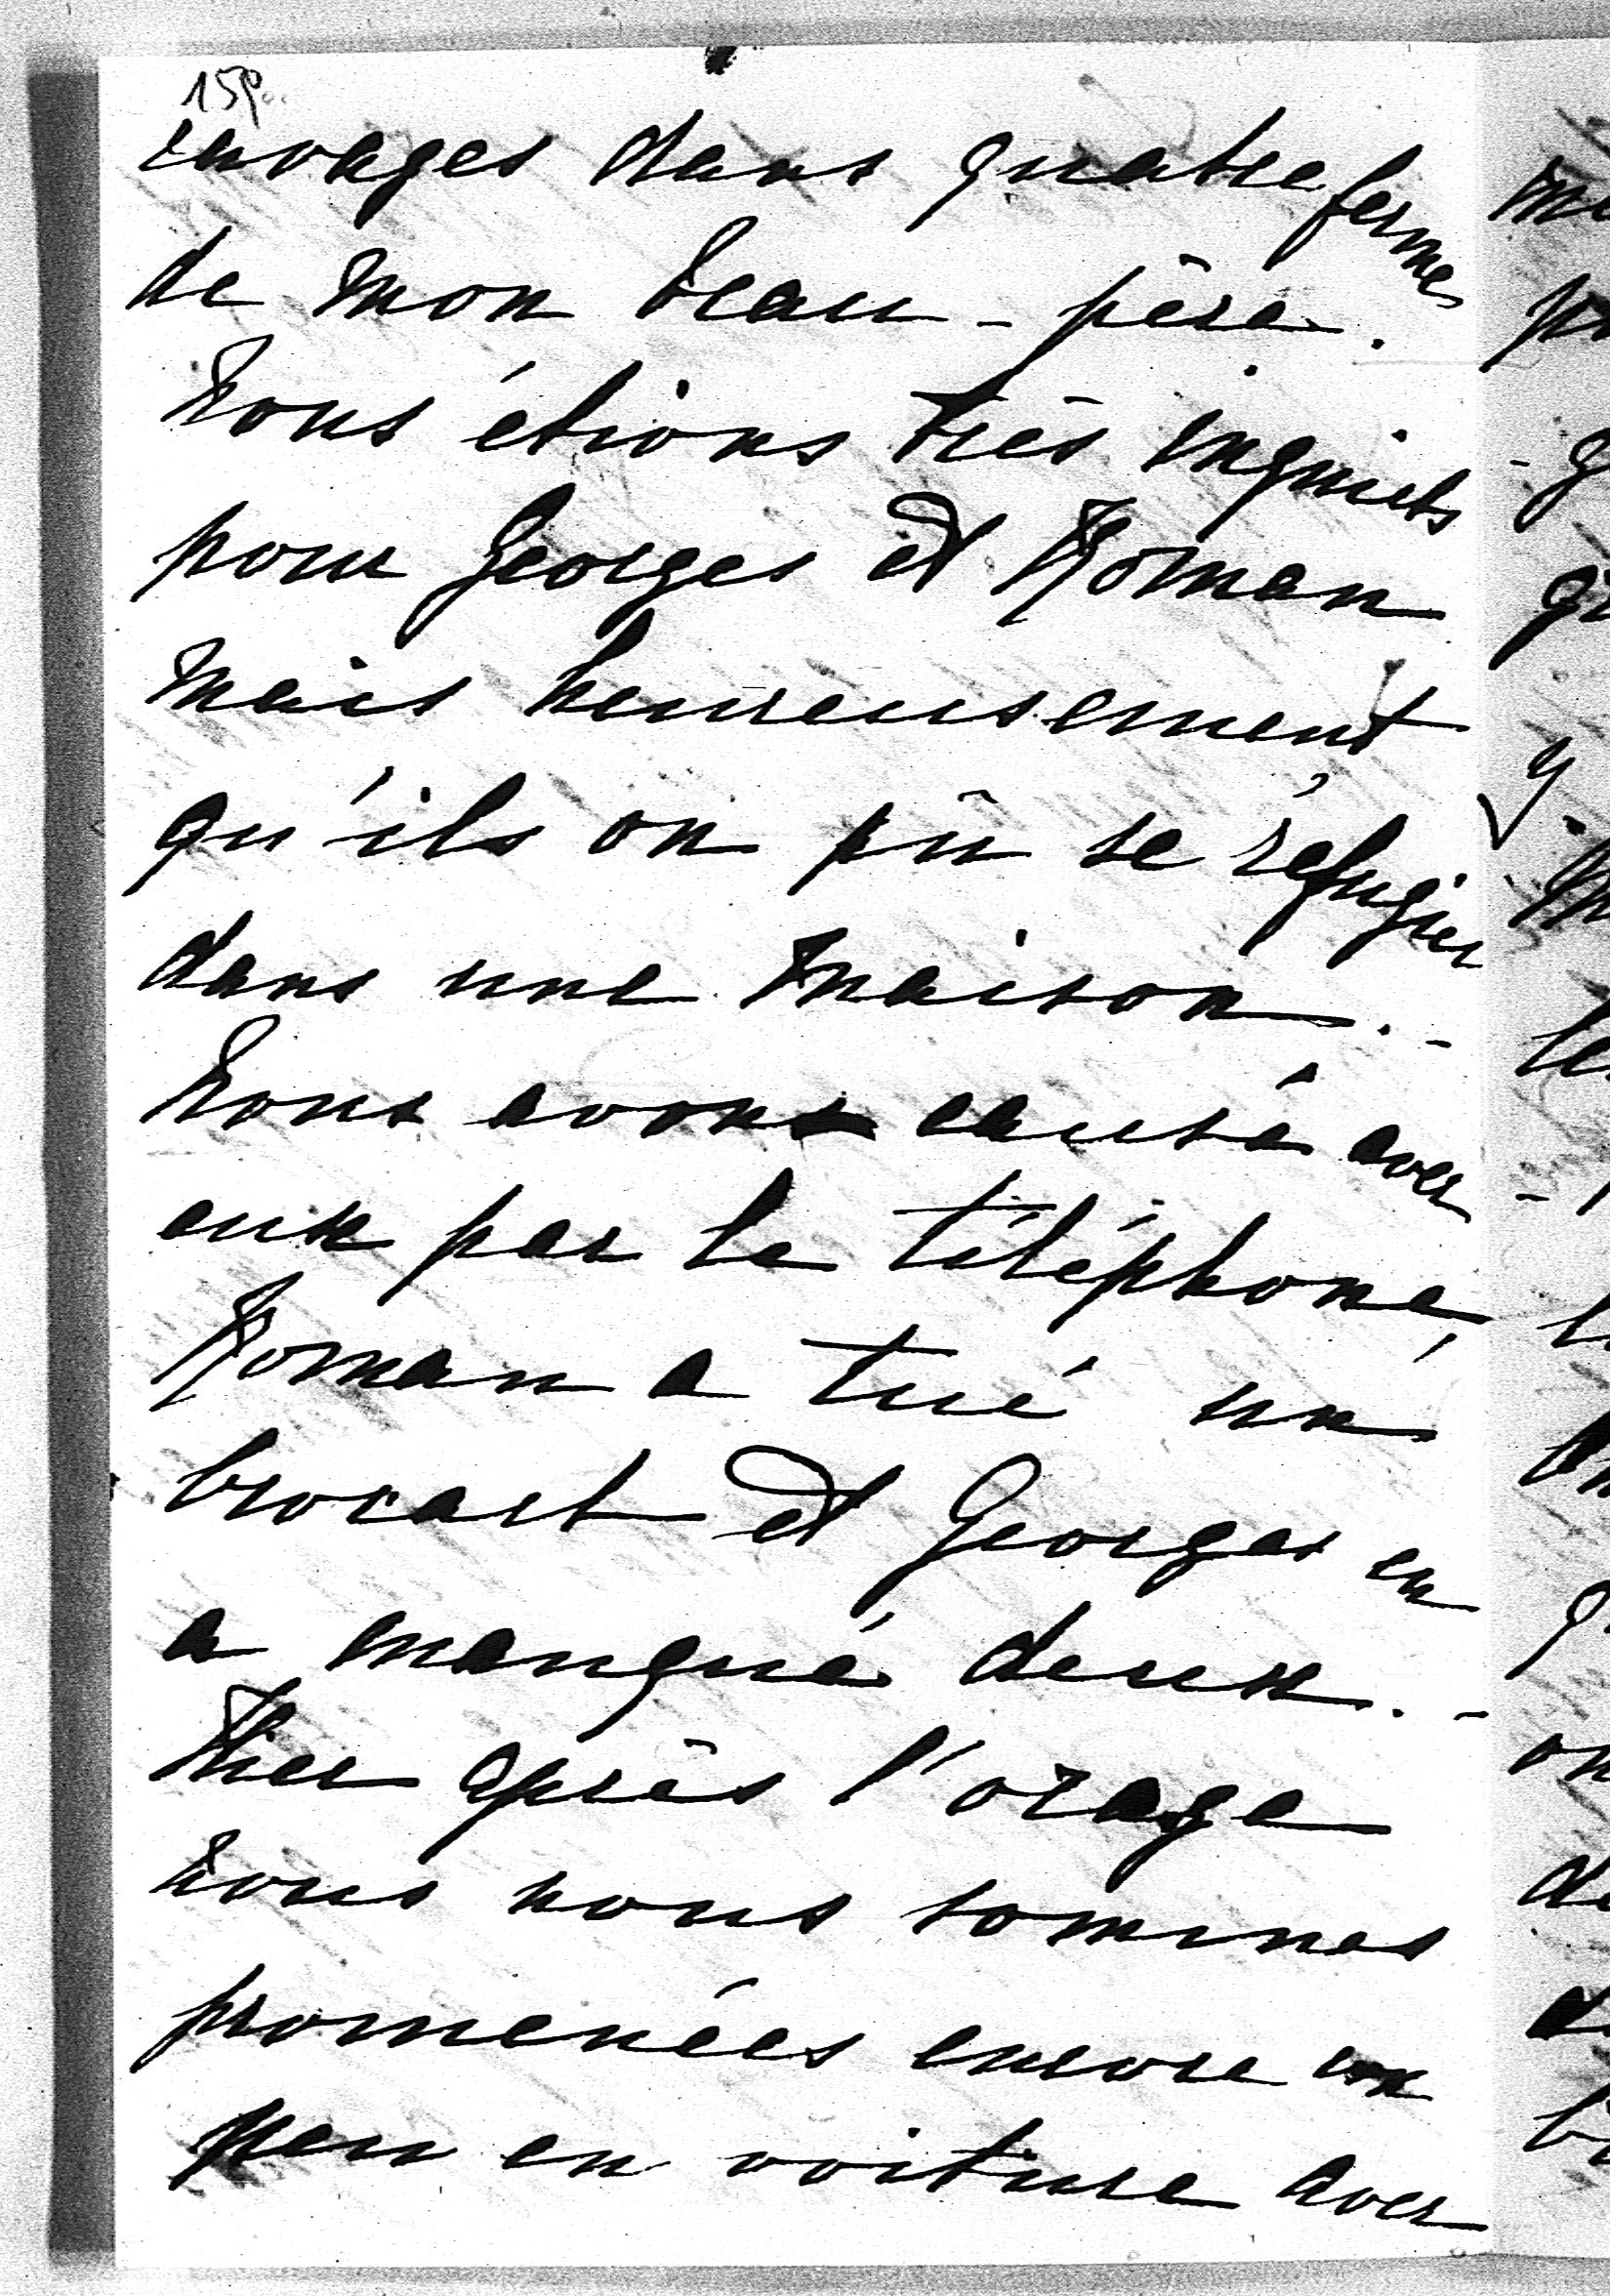 159
ravages dans quatre fermes
de mon beau-père.
Nous étions très inquiets
pour Georges et Roman
mais heureusement
qu'ils on pû se réfugier
dans une maison.-
Nous avons causé avec
eux par le téléphone,
Roman a tué un
brocart et Georges en
a manqué deux.-
Hier après l'orage
nous nous sommes
promenées encore un
peu en voiture avec